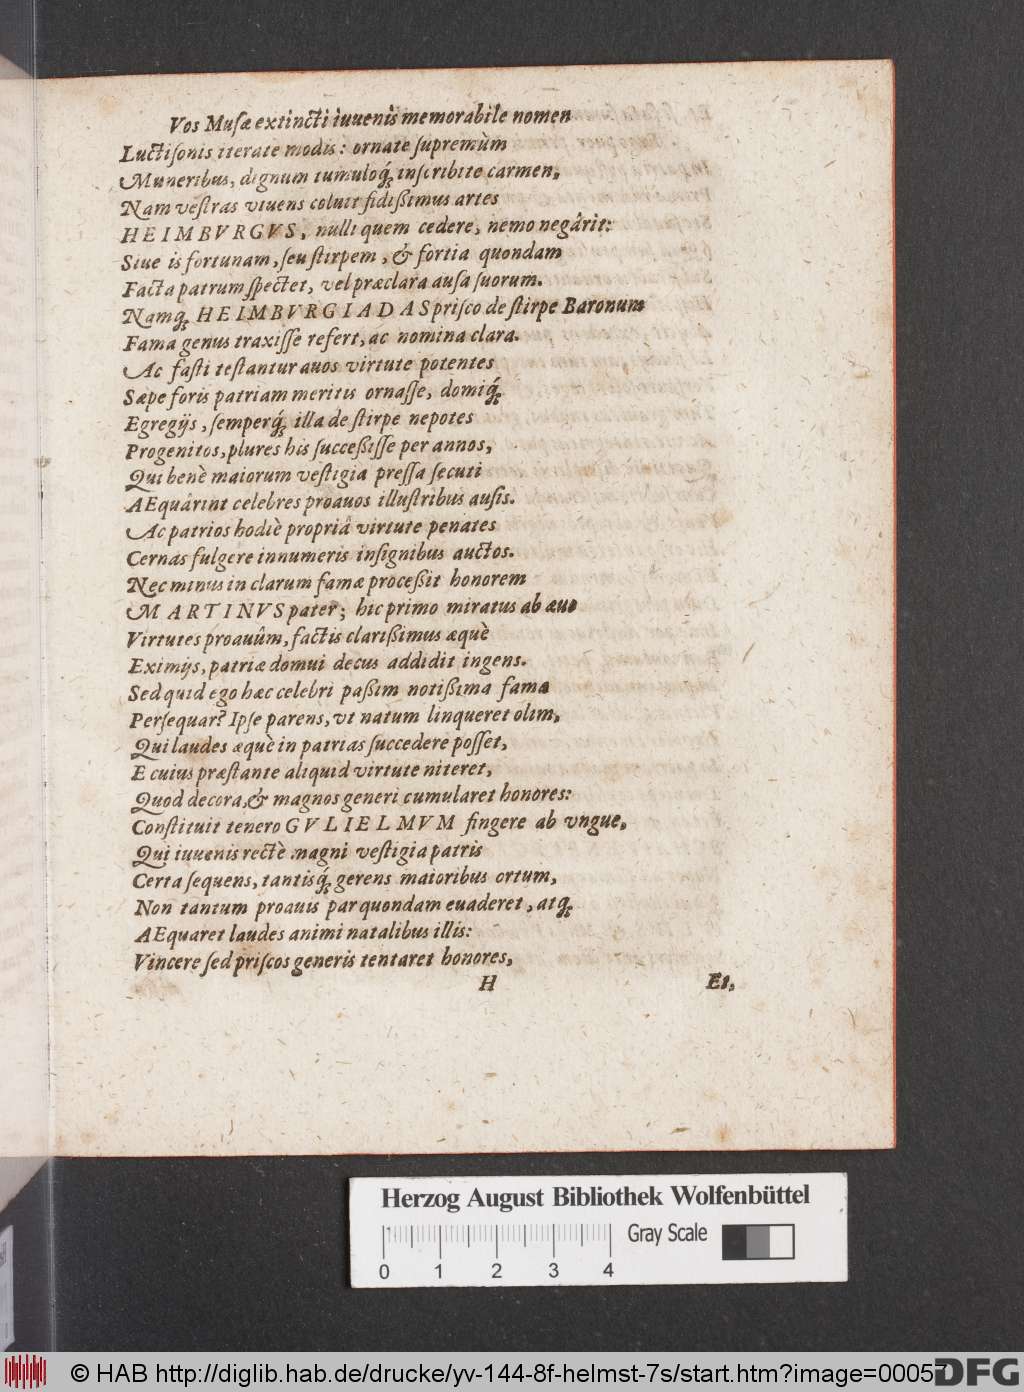 Vos Musæ extincti iuuenis memorabile nomen
Luctisonis iterate modis: ornate supremùm
Muneribus, dignum tumuloq́; inscribite carmen,
Nam vestras viuens coluit fidißimus artes
HEIMBVRGVS, nulli quem cedere, nemo negârit:
Siue is fortunam, seu stirpem, & fortia quondam
Facta patrum spectet, vel præclara ausa suorum.
Namq; HEIMBVRGIADAS prisco de stirpe Baronum
Fama genus traxisse refert, ac nomina clara.
Ac fasti testantur auos virtute potentes
Sæpe foris patriam meritis ornasse, domiq́;
Egregijs, semperq́; illa de stirpe nepotes
Progenitos, plures his succeßisse per annos,
Qui benè maiorum vestigia pressa secuti
AEquârint celebres proauos illustribus ausis.
Ac patrios hodiè propriâ virtute penates
Cernas fulgere innumeris insignibus auctos.
Nec minus in clarum famæ proceßit honorem
MARTINVS pater; hic primo miratus ab æuo
Virtutes proauûm, factis clarißimus æquè
Eximijs, patriæ domui decus addidit ingens.
Sed quid ego hæc celebri paßim notißima fama
Persequar? Ipse parens, vt natum linqueret olim,
Qui laudes æquè in patrias succedere posset,
E cuius præstante aliquid virtute niteret,
Quod decora, & magnos generi cumularet honores:
Constituit tenero GVLIELMVM fingere ab vngue,
Qui iuuenis rectè magni vestigia patris
Certa sequens, tantisq́; gerens maioribus ortum,
Non tantum proauis par quondam euaderet, atq;
AEquaret laudes animi natalibus illis:
Vincere sed priscos generis tentaret honores,
H Et,
Herzog August Bibliothek Wolfenbüttel
Gray Scale
0 1 2 3 4
© HAB http://diglib.hab.de/drucke/yv-144-8f-helmst-7s/start.htm?image=00057
DFG